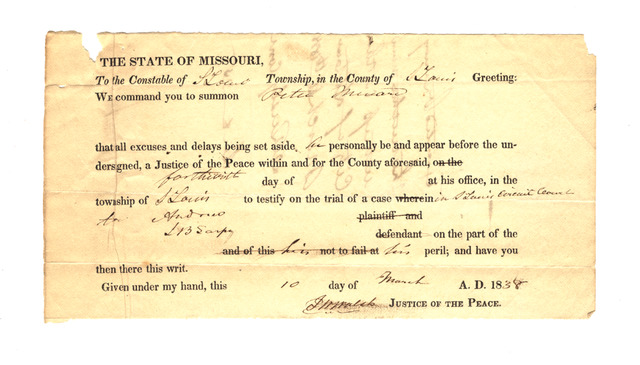 THE STATE OF MISSOURI,
To the Constable of St Louis Township, in the County of St Louis Greeting:
WE command you to summon Peter Menard
that all excuses and delays being set aside, he personally be and appear before the un-
dersigned, a Justice of the Peace within and for the County aforesaid, on the
forthwith day of at his office, in the
township of St Louis to testify on the trial of a case wherein in St Louis Circuit Court
Andrews plaintiff and
J B Sarpy defendant on the part of the
and of this his not to fail at his peril; and have you
then there this writ.
Given under my hand, this 10 day of March A. D. 1838
JUSTICE OF THE PEACE.